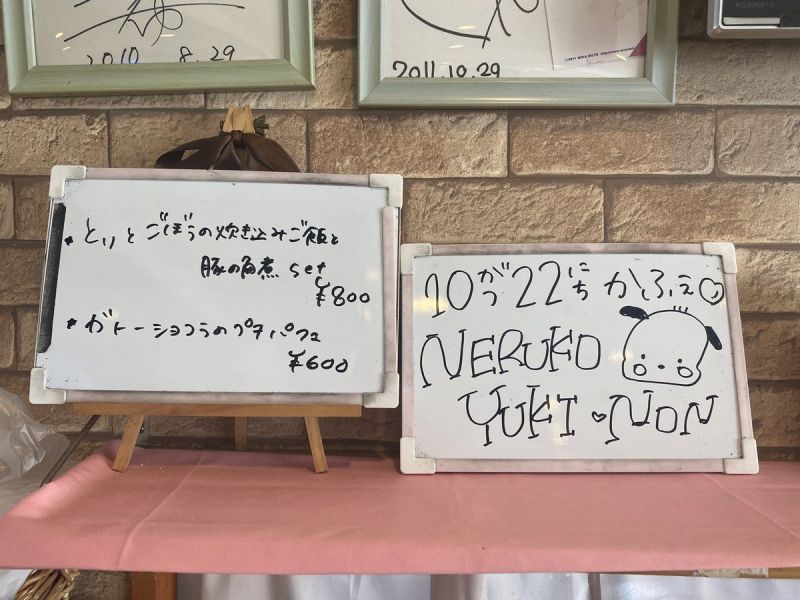 2010 8.29
2011.10.29
・とりとごぼうの炊き込みご飯と
豚の角煮 set
¥800
・ガトーショコラのプチパフェ
¥600
10がつ22にち かふぇ
NERUKO
YUKI ♥ NON